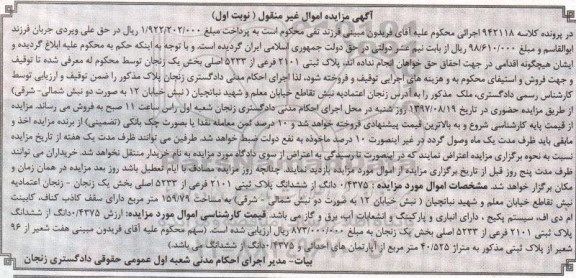 آگهی مزایده اموال غیر منقول ( نوبت اول)
در پرونده کلاسه ۹۴۲۱۱۸ اجرائی محکوم علیه آقای فریدون مبینی فرزند تقی محکوم است به پرداخت مبلغ ۱/۹۲۲/۲۰۲/۰۰۰ ریال در حق علی ویردی جربان فرزند
ابوالقاسم و مبلغ ۹۸/۶۱۰/۰۰۰ ریال از بابت نیم عشر دولتی در حق دولت جمهوری اسلامی ایران گردیده است. و با توجه به اینکه حکم به محکوم علیه ابلاغ گردیده و
ایشان هیچگونه اقدامی در جهت احقاق حق خواهان انجام نداده اند، پلاک ثبتی ۲۱۰۱ فرعی از ۵۲۳۳ اصلی بخش یک زنجان توسط محکوم له معرفی شده تا توقیف
و جهت فروش و استیفای محکوم به و هزینه های اجرایی توقیف و فروخته شود، لذا اجرای احکام مدنی دادگستری زنجان پلاک مذکور را ضمن توقیف و ارزیابی توسط
کارشناس رسمی دادگستری، ملک مذکور را به آدرس زنجان اعتمادیه نبش تقاطع خیابان معلم و شهید نباتچیان ( نبش خیابان ۱۲ به صورت دو نبش شمالی- شرقی)
از طریق مزایده حضوری در تاریخ ۱۳۹۷/۰۸/۱۹ روز شنبه در محل اجرای احکام مدنی دادگستری زنجان شعبه اول راس ساعت ۱۱ صبح به فروش می رساند مزایده
از قیمت پایه کارشناسی شروع و به بالاترین قیمت پیشنهادی فروخته خواهد شد و ۱۰ درصد ثمن معامله نقدا یا بصورت چک بانکی (تضمینی) از برنده مزایده اخذ و
مابقی باید ظرف مدت یک ماه وصول گردد در غیر اینصورت ۱۰ درصد ماخوذه به نفع دولت ضبط خواهد شد. طرفین می توانند ظرف مدت یک هفته از تاریخ مزایده
نسبت به نحوه برگزاری مزایده اعتراض نمایند که در اینصورت تا رسیدگی به اعتراض از سوی دادگاه مورد مزایده به نام خریدار منتقل نخواهد شد. خریداران می توانند
ظرف مدت پنج روز قبل از تاریخ برگزاری مزایده از اموال مورد مزایده بازدید نمایند. چنانچه روز مزایده مصادف با ایام تعطیل باشد روز بعد مزایده در همان زمان و
مکان برگزار خواهد شد. مشخصات اموال مورد مزایده : ۰/۴۳۷۵ دانگ از ششدانگ پلاک ثبتی ۲۱۰۱ فرعی از ۵۲۳۳ اصلی بخش یک زنجان - زنجان اعتمادیه
نبش تقاطع خیابان معلم و شهید نباتچیان ( نبش خیابان ۱۲ به صورت دو نبش شمالی - شرقی) به مساحت ۱۵۹/۷۹ متر مربع دارای سقف کاذب کناف، کابینت
ام دی اف، سیستم پکیج ، دارای انباری و پارکینگ و انشعابات آب، برق و گاز می باشد. قیمت کارشناسی اموال مورد مزایده: ارزش ۰/۴۳۷۵ دانگ از ششدانگ
پلاک ثبتی ۲۱۰۱ فرعی از ۵۲۳۳ اصلی بخش یک زنجان به مبلغ ۸۷۳/۰۰۰/۰۰۰ ریال ارزیابی شده است. (سهم محکوم علیه آقای فریدون مبینی هفت شعیر از ۹۶
شعیر از پلاک ثبتی مذکور به متراژ ۴۰/۵۲۵ متر مربع از آپارتمان های احداثی و ۰/۴۳۷۵ دانگ از ششدانگ می باشد)
بیات- مدیر اجرای احکام مدنی شعبه اول عمومی حقوقی دادگستری زنجان